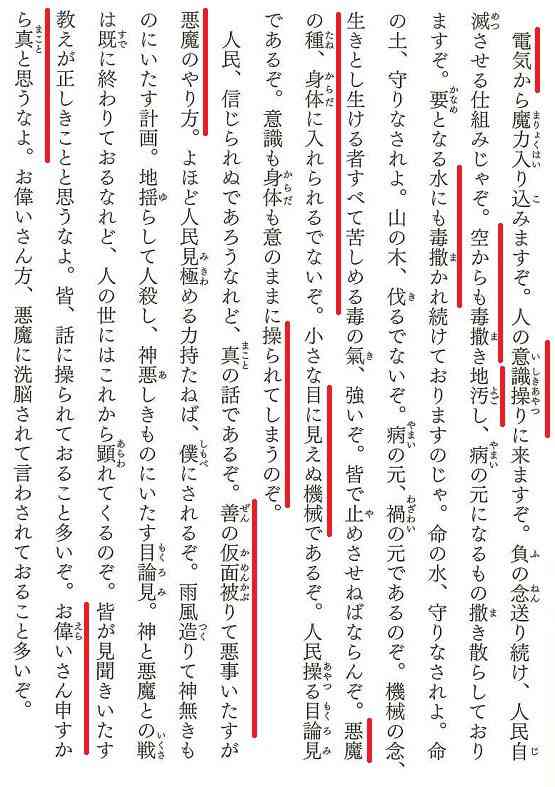 電気から魔力入り込みますぞ。人の意識操りに来ますぞ。負の念送り続け、人民自
滅させる仕組みじゃぞ。空からも毒撒き地汚し、病の元になるもの撒き散らしており
ますぞ。要となる水にも毒撒かれ続けておりますのじゃ。命の水、守りなされよ。命
の土、守りなされよ。山の木、伐るでないぞ。病の元、禍の元であるのぞ。機械の念、
生きとし生ける者すべて苦しめる毒の氣、強いぞ。皆で止めさせねばならんぞ。悪魔
の種、身体に入れられるでないぞ。小さな目に見えぬ機械であるぞ。人民操る目論見
であるぞ。意識も身体も意のままに操られてしまうのぞ。
人民、信じられぬであろうなれど、真の話であるぞ。善の仮面被りて悪事いたすが
悪魔のやり方。よほど人民見極める力持たねば、僕にされるぞ。雨風造りて神無きも
のにいたす計画。地揺らして人殺し、神悪しきものにいたす目論見。神と悪魔との戦
は既に終わりておるなれど、人の世にはこれから顕れてくるのぞ。皆が見聞きいたす
教えが正しきことと思うなよ。皆、話に操られておること多いぞ。お偉いさん申すか
ら真と思うなよ。お偉いさん方、悪魔に洗脳されて言わされておること多いぞ。